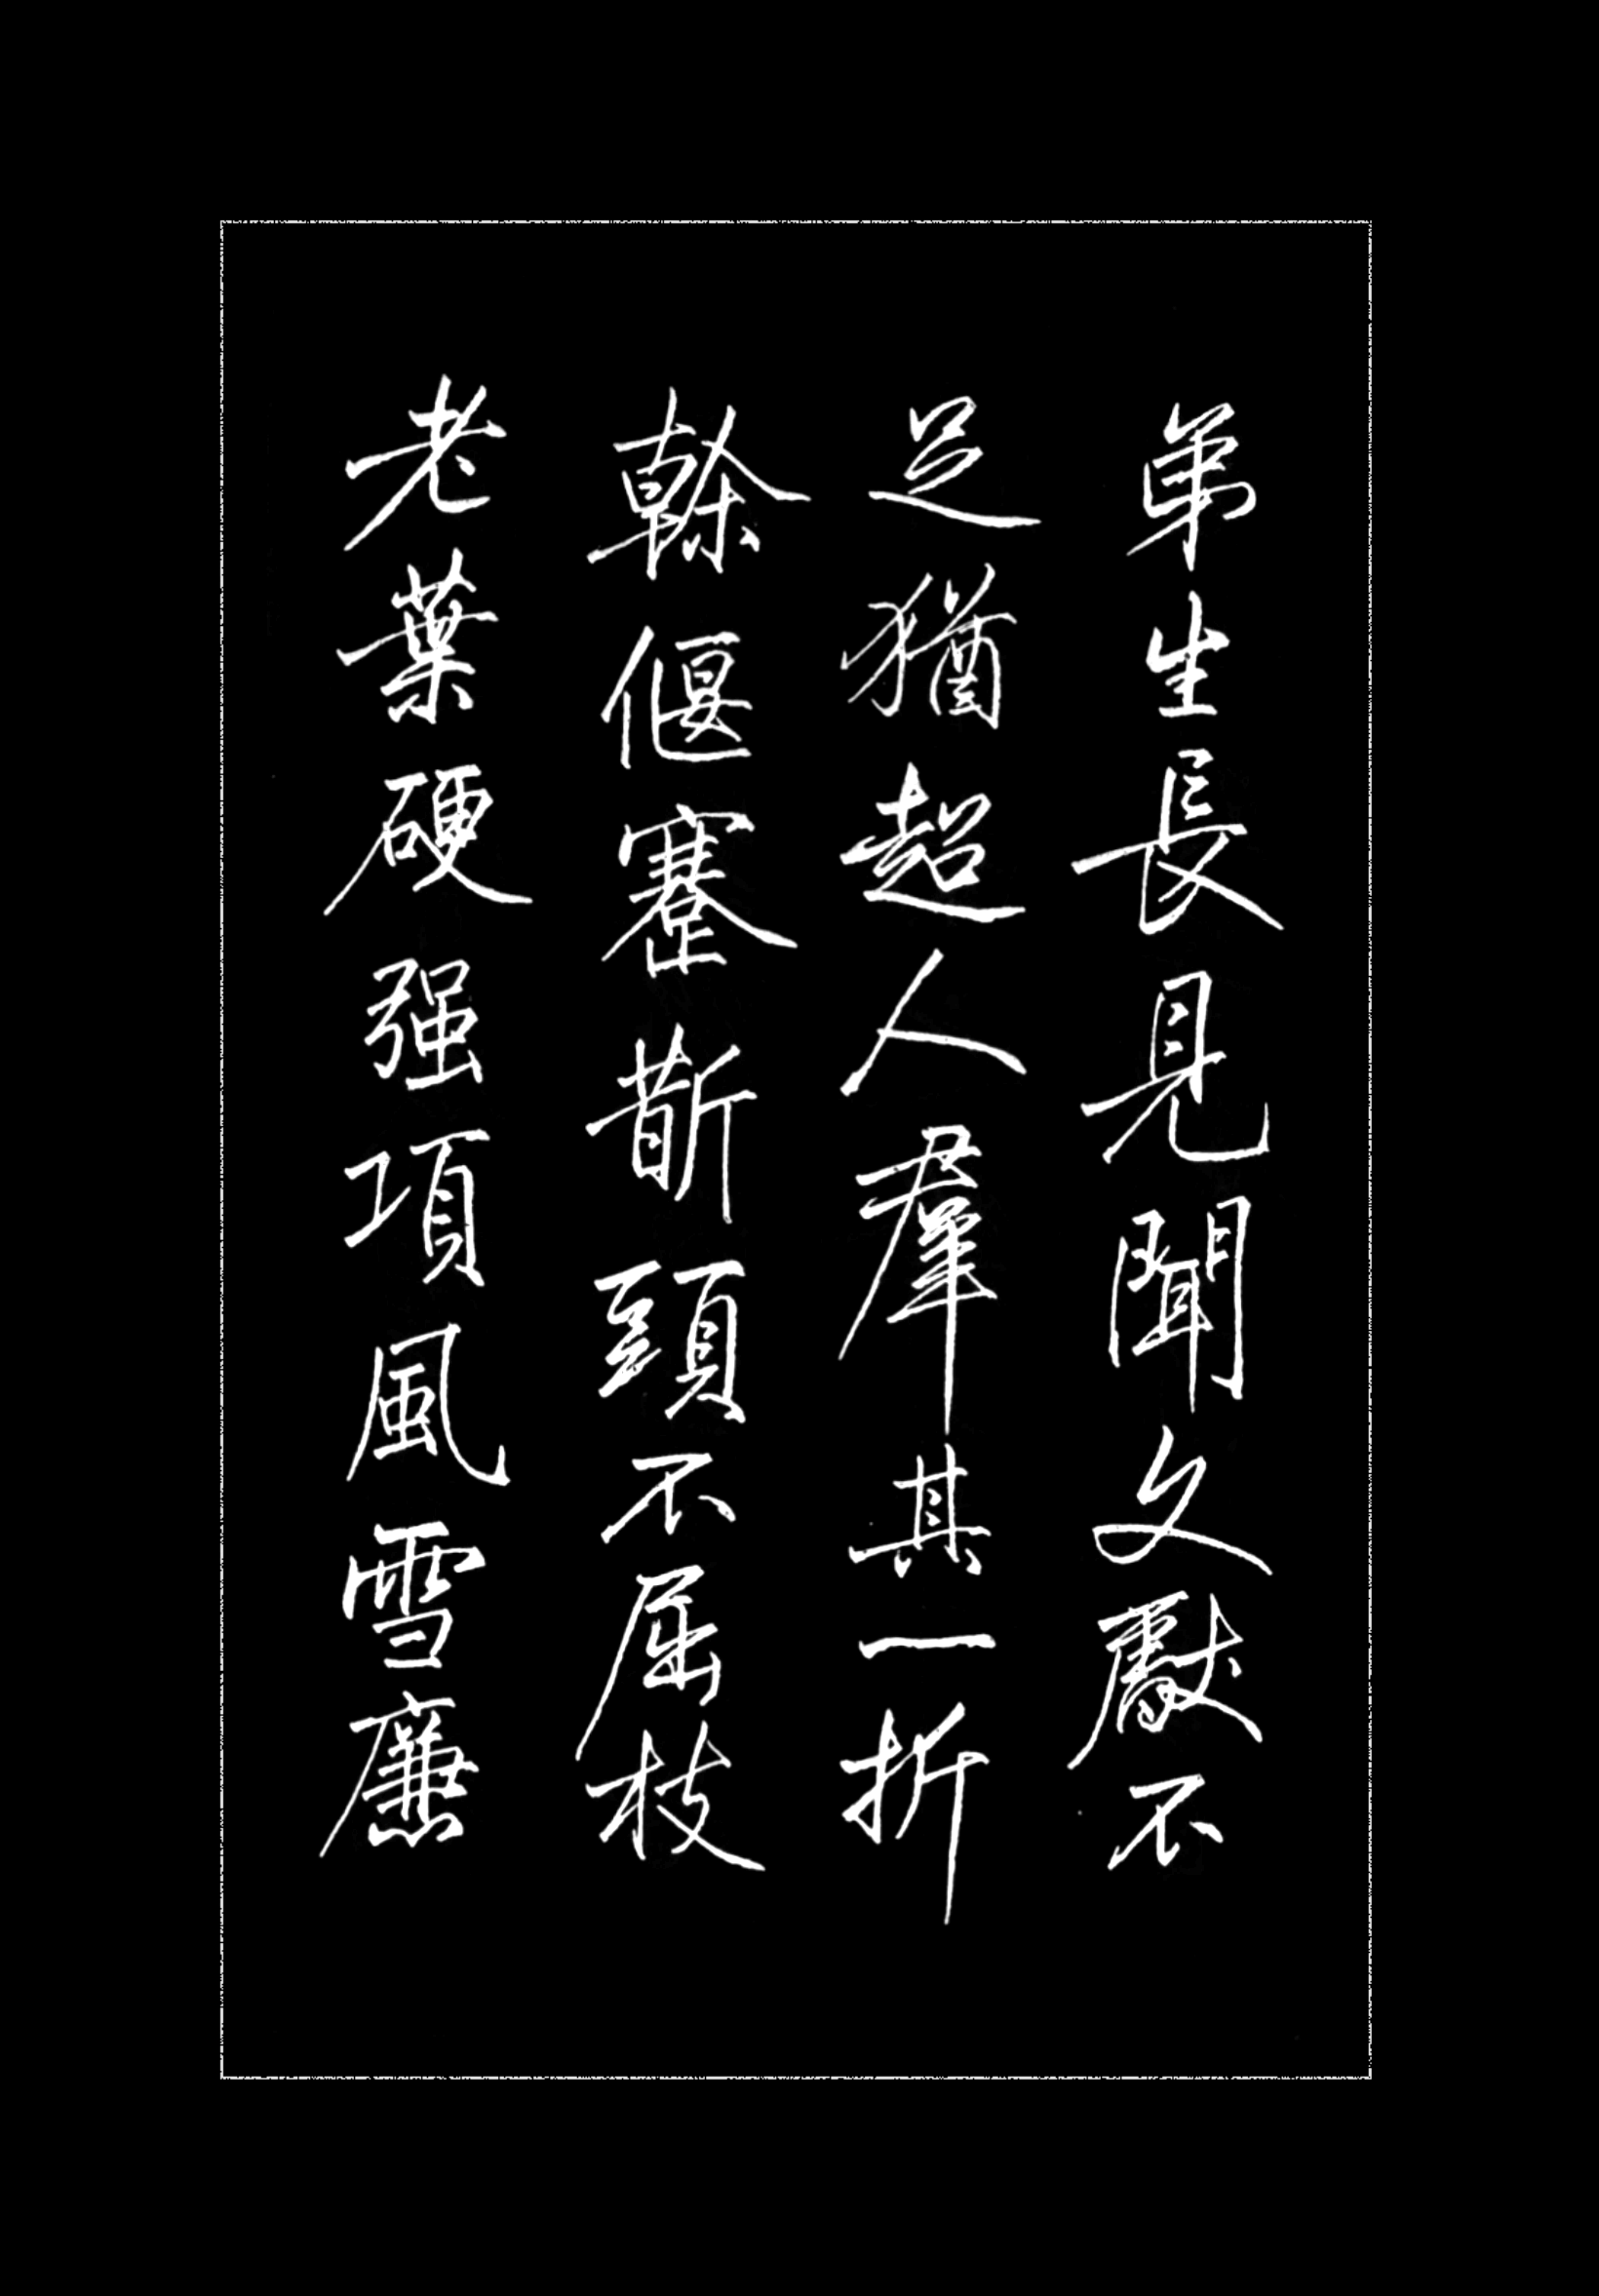 弟生長見聞文獻不
足猶超人羣其一折
榦偃蹇斮頭不屈枝
老葉硬强項風雪廉